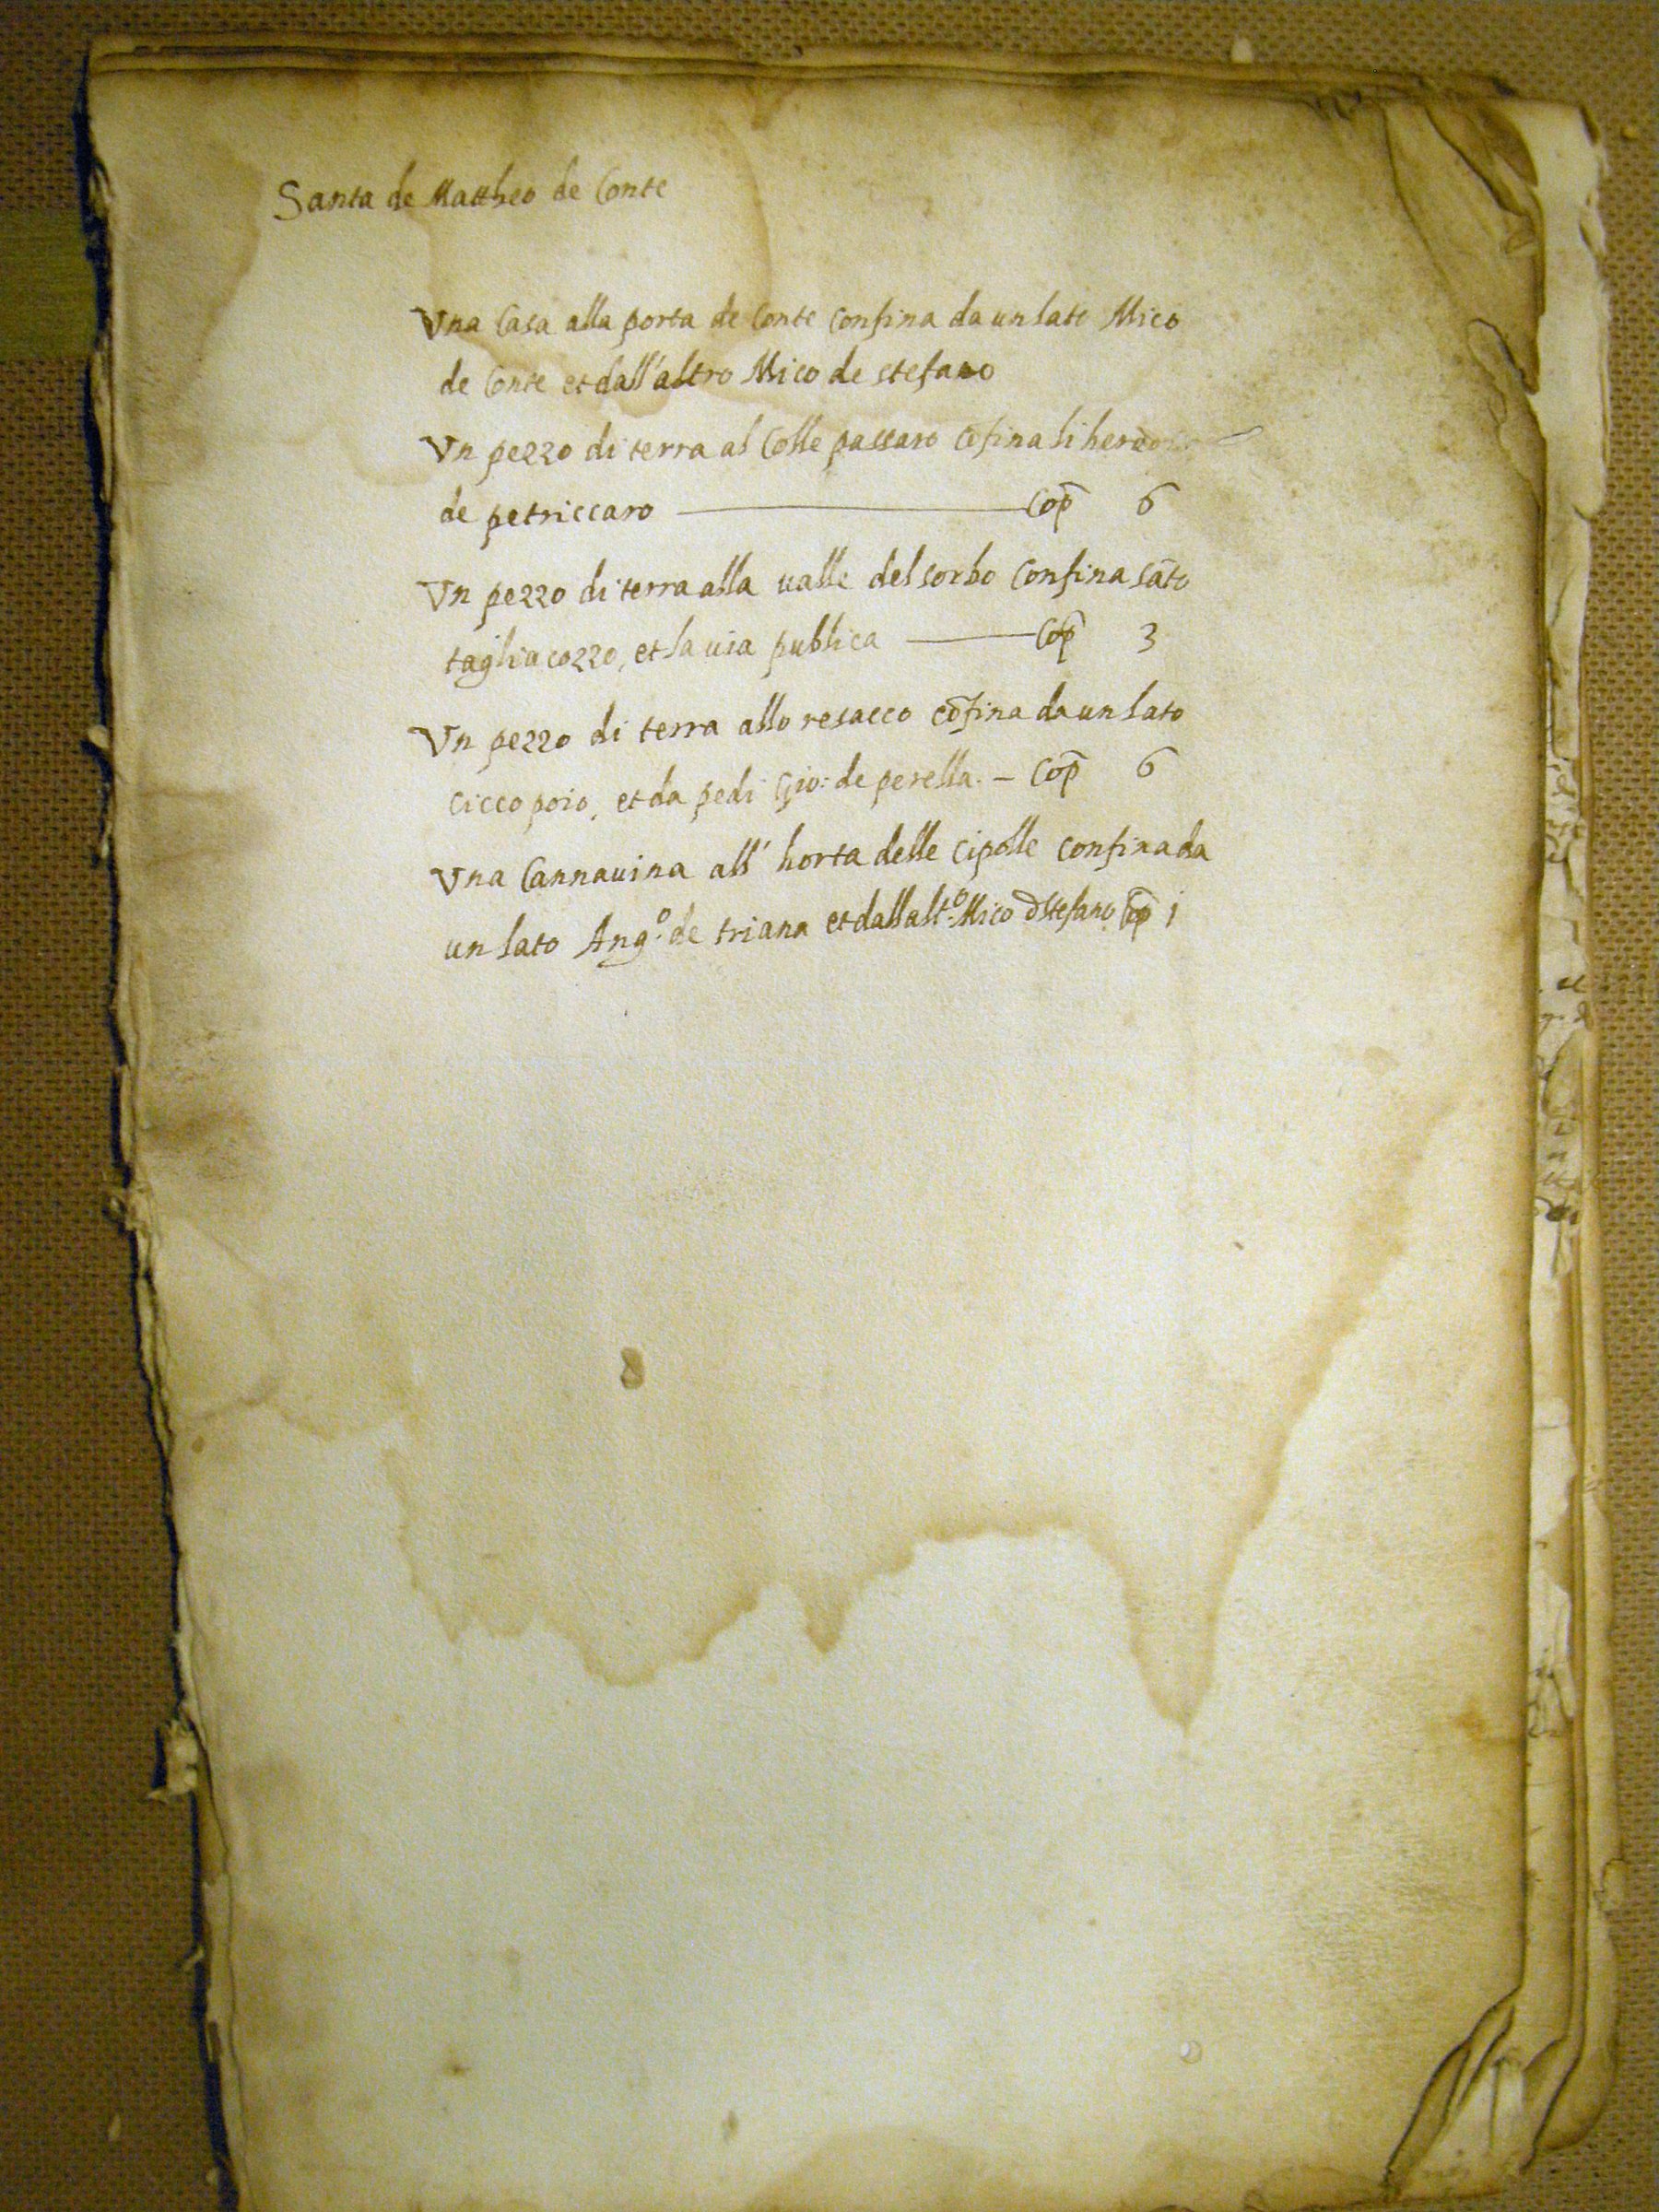 Santa de Mattheo de Conte
Una Casa alla porta de Conte Confina da un lato Mico
de Conte et dall'altro Mico de stefano
Un pezzo di terra al Colle passaro Cōfina li
de petriccaro Cop̄ 6
Un pezzo di terra alla ualle del sorbo Confina sāto
tagliacozzo, et la uia publica Cop̄ 3
Un pezzo di terra allo resacco cōfina da un lato
cicco poio, et da pedi Gio: de perella. – Cop̄ 6
Una Cannauina all' horta delle cipolle confina da
un lato Ang.º de triana et dall alt.º Mico d stefano cop̄ 1